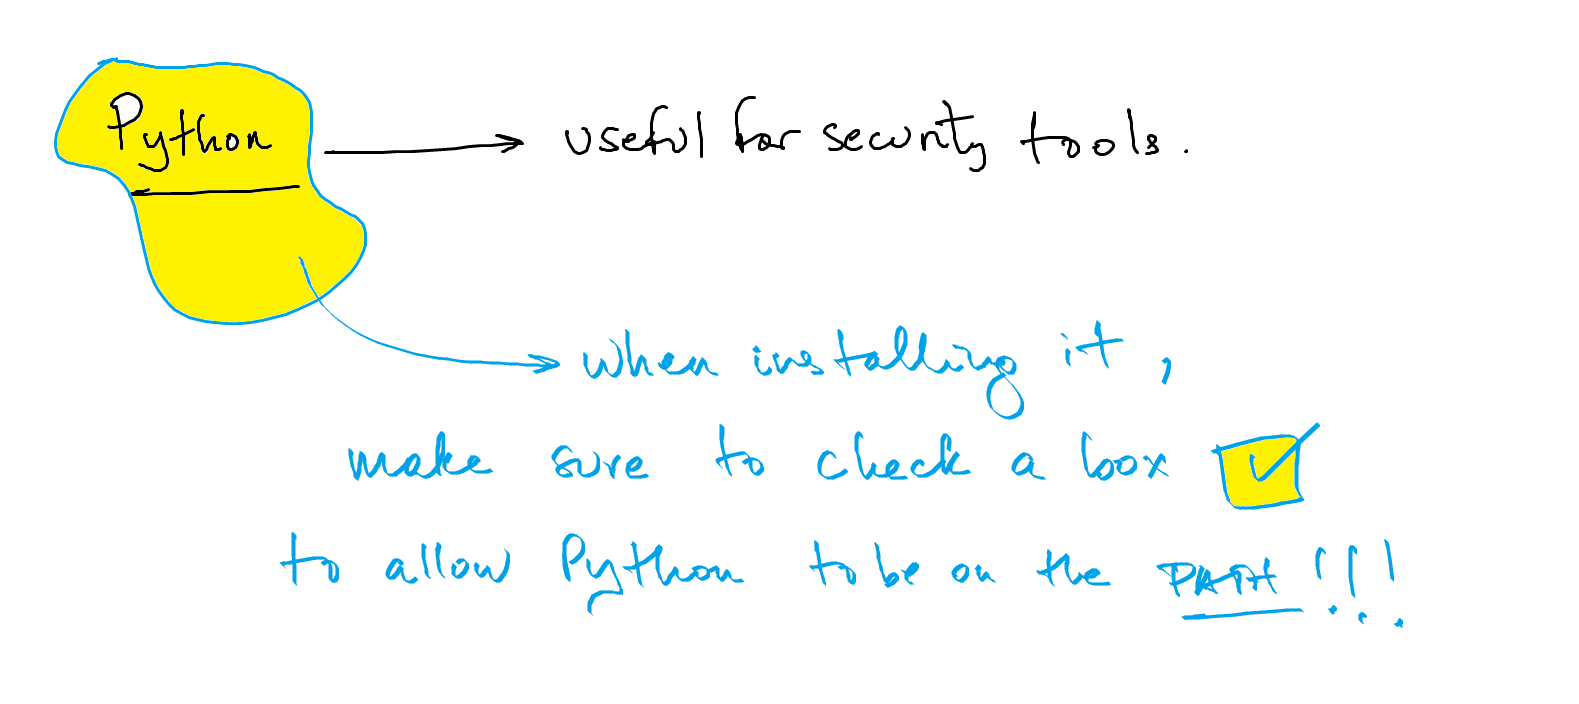 Python → useful for security tools.
when installing it,
make sure to check a box ☑
to allow Python to be on the PATH!!!